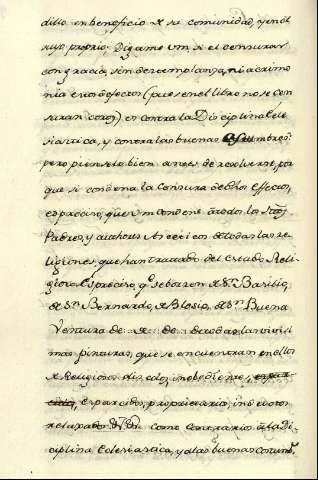 dillo en beneficio de su comunidad, y en el
suyo proprio; Digame Vm. si el censurar
con gracia, sin destemplanza, ni acrimo
nia estos defectos (pues en el libro no se cen
suran otros) es contra la Disciplina ecle
siastica, y contra las buenas costumbres:
pero pienselo bien antes de resolverse, por
que si condena la censura de estos efectos,
es preciso, que Vm condene a todos los Stos
Padres, y authores Asceticos de todas las re
ligiones, que han tratado del Estado Reli
gioso. Es preciso, qe se borren de Sn Basilio,
de Sn Bernardo, de Blosio, de Sn Buena
Ventura de de de todas las vivissi
mas pinturas, que se encuentran en ellos
de Religiosos discolos, inobedientes,
esparcidos, proprietarios, indevotos
relaxados como contrarias a la Di
ciplina Eclesiastica, y a las buenas costumbs.